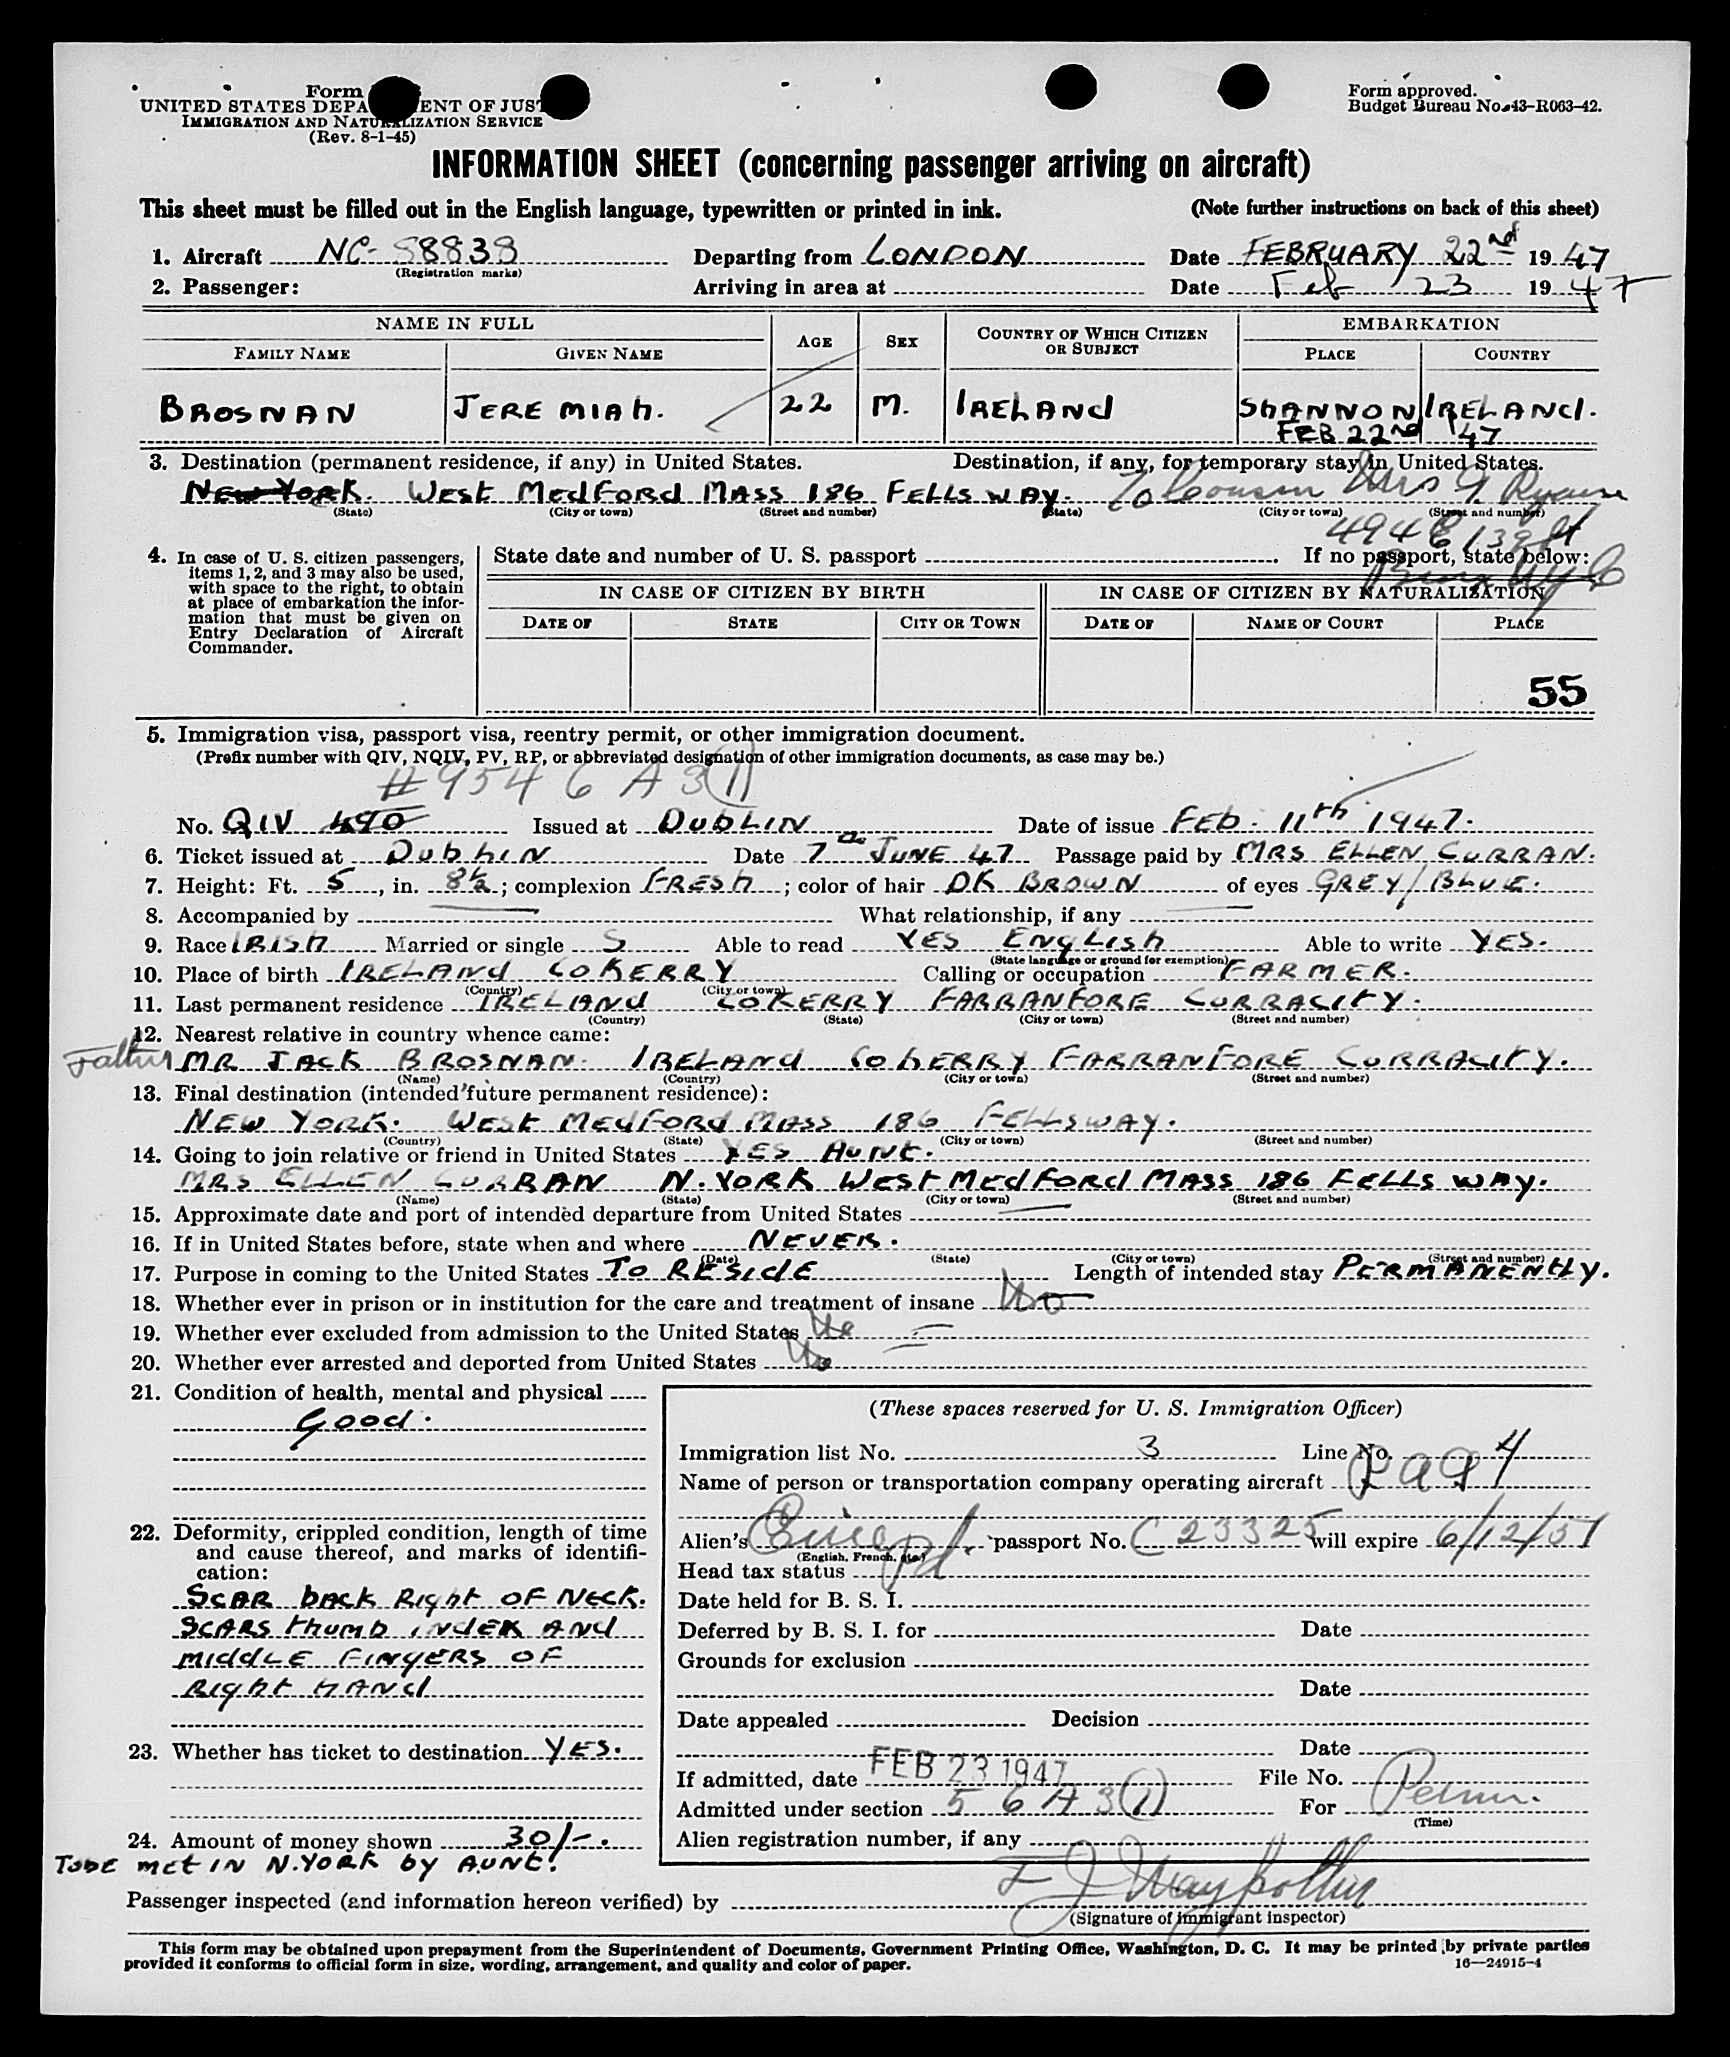 Form
UNITED STATES DEPA ENT OF JUST
IMMIGRATION AND NATURALIZATION SERVICE
(Rev. 8-1-45)
Form approved.
Budget Bureau No. 43-R063-42.
INFORMATION SHEET (concerning passenger arriving on aircraft)
This sheet must be filled out in the English language, typewritten or printed in ink. (Note further instructions on back of this sheet)
1. Aircraft NC-88838 Departing from LONDON Date FEBRUARY 22nd 1947
(Registration marks)
2. Passenger: Arriving in area at Date Feb 23 1947
NAME IN FULL AGE SEX COUNTRY OF WHICH CITIZEN OR SUBJECT EMBARKATION
FAMILY NAME GIVEN NAME PLACE COUNTRY
BROSNAN JEREMIAH. 22 M. IRELAND SHANNON IRELAND.
FEB 22nd 47
3. Destination (permanent residence, if any) in United States. Destination, if any, for temporary stay in United States.
NEW YORK. WEST MEDFORD MASS 186 FELLSWAY. To Cousin Mrs G
(State) (City or town) (Street and number) (State) (City or town) (Street and number)
494 E 138 St
Bronx NYC
4. In case of U. S. citizen passengers, items 1, 2, and 3 may also be used, with space to the right, to obtain at place of embarkation the information that must be given on Entry Declaration of Aircraft Commander.
State date and number of U. S. passport . If no passport, state below:
IN CASE OF CITIZEN BY BIRTH IN CASE OF CITIZEN BY NATURALIZATION
DATE OF STATE CITY OR TOWN DATE OF NAME OF COURT PLACE
55
5. Immigration visa, passport visa, reentry permit, or other immigration document.
(Prefix number with QIV, NQIV, PV, RP, or abbreviated designation of other immigration documents, as case may be.)
#954 6 A 3(1)
No. QIV 490 Issued at DUBLIN Date of issue FEB. 11th 1947.
6. Ticket issued at DUBLIN Date 7 JUNE 47 Passage paid by MRS ELLEN CURRAN.
7. Height: Ft. 5, in. 8½; complexion FRESH; color of hair DK BROWN of eyes GREY/BLUE.
8. Accompanied by What relationship, if any
9. Race IRISH Married or single S Able to read YES ENGLISH Able to write YES.
(State language or ground for exemption)
10. Place of birth IRELAND CO KERRY Calling or occupation FARMER.
(Country) (City or town)
11. Last permanent residence IRELAND CO KERRY FARRANFORE CURRACITY.
(Country) (State) (City or town) (Street and number)
12. Nearest relative in country whence came:
Father MR JACK BROSNAN. IRELAND CO KERRY FARRANFORE CURRACITY.
(Name) (Country) (City or town) (Street and number)
13. Final destination (intended future permanent residence):
NEW YORK. WEST MEDFORD MASS 186 FELLSWAY.
(Country) (State) (City or town) (Street and number)
14. Going to join relative or friend in United States YES AUNT.
MRS ELLEN CURRAN N. YORK WEST MEDFORD MASS 186 FELLSWAY.
(Name) (State) (City or town) (Street and number)
15. Approximate date and port of intended departure from United States
16. If in United States before, state when and where NEVER.
(Date) (State) (City or town) (Street and number)
17. Purpose in coming to the United States TO RESIDE Length of intended stay PERMANENTLY.
18. Whether ever in prison or in institution for the care and treatment of insane No
19. Whether ever excluded from admission to the United States No
20. Whether ever arrested and deported from United States No
21. Condition of health, mental and physical
Good.
22. Deformity, crippled condition, length of time and cause thereof, and marks of identification:
SCAR BACK RIGHT OF NECK.
SCARS THUMB INDEX AND
MIDDLE FINGERS OF
RIGHT HAND
23. Whether has ticket to destination YES.
24. Amount of money shown 30/-.
TO BE MET IN N. YORK BY AUNT.
(These spaces reserved for U. S. Immigration Officer)
Immigration list No. 3 Line No. 4
Name of person or transportation company operating aircraft
Alien's passport No. C 23325 will expire 6/12/51
(English, French, etc.)
Head tax status pd.
Date held for B. S. I.
Deferred by B. S. I. for Date
Grounds for exclusion
Date
Date appealed Decision
Date
If admitted, date FEB 23 1947 File No.
Admitted under section 5 6 A 3(1) For Perm.
(Time)
Alien registration number, if any
Passenger inspected (and information hereon verified) by
(Signature of immigrant inspector)
This form may be obtained upon prepayment from the Superintendent of Documents, Government Printing Office, Washington, D. C. It may be printed by private parties
provided it conforms to official form in size, wording, arrangement, and quality and color of paper. 16—24915-4